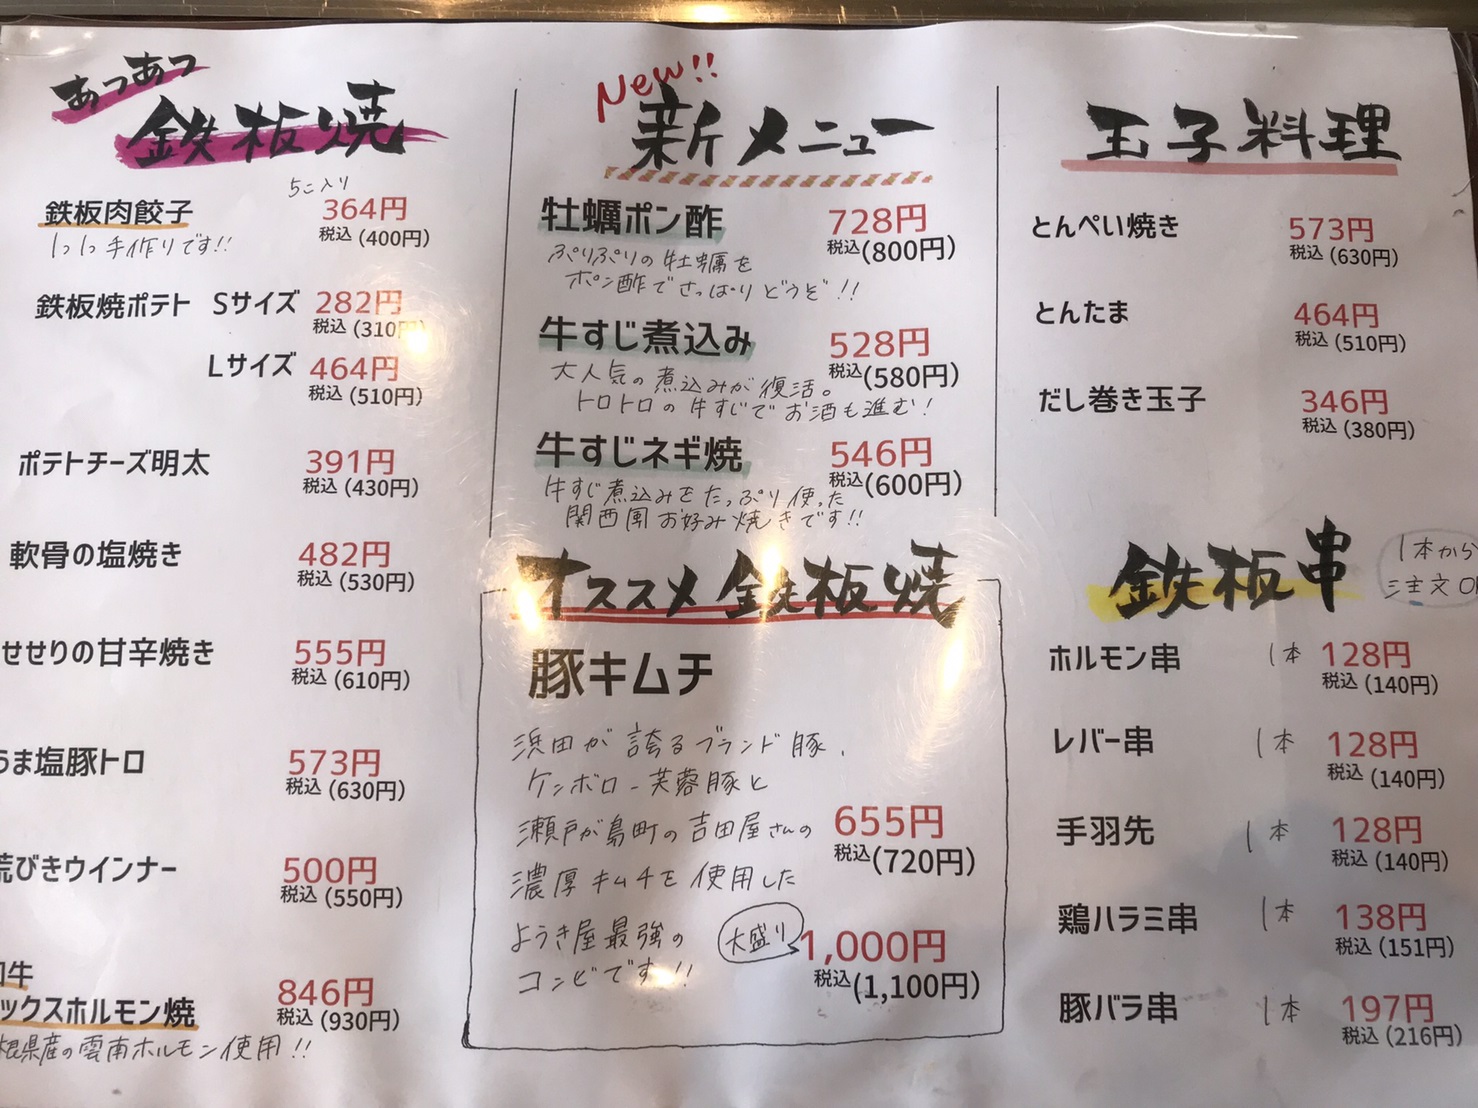 あつあつ
鉄板焼
5こ入り
鉄板肉餃子 364円
税込(400円)
1つ1つ手作りです!!
鉄板焼ポテト Sサイズ 282円
税込(310円)
Lサイズ 464円
税込(510円)
ポテトチーズ明太 391円
税込(430円)
軟骨の塩焼き 482円
税込(530円)
せせりの甘辛焼き 555円
税込(610円)
うま塩豚トロ 573円
税込(630円)
荒びきウインナー 500円
税込(550円)
和牛
ックスホルモン焼 846円
税込(930円)
根県産の雲南ホルモン使用!!
New!!
新メニュー
牡蠣ポン酢 728円
税込(800円)
ぷりぷりの牡蠣を
ポン酢でさっぱりどうぞ!!
牛すじ煮込み 528円
税込(580円)
大人気の煮込みが復活。
トロトロの牛すじでお酒も進む!
牛すじネギ焼 546円
税込(600円)
牛すじ煮込みをたっぷり使った
関西風お好み焼きです!!
オススメ鉄板焼
豚キムチ
浜田が誇るブランド豚、
ケンボロー芙蓉豚と
瀬戸が島町の吉田屋さんの
濃厚キムチを使用した
ようき屋最強の
コンビです!!
655円
税込(720円)
大盛り 1,000円
税込(1,100円)
玉子料理
とんぺい焼き 573円
税込(630円)
とんたま 464円
税込(510円)
だし巻き玉子 346円
税込(380円)
鉄板串
1本から
注文O
ホルモン串 1本 128円
税込(140円)
レバー串 1本 128円
税込(140円)
手羽先 1本 128円
税込(140円)
鶏ハラミ串 1本 138円
税込(151円)
豚バラ串 1本 197円
税込(216円)